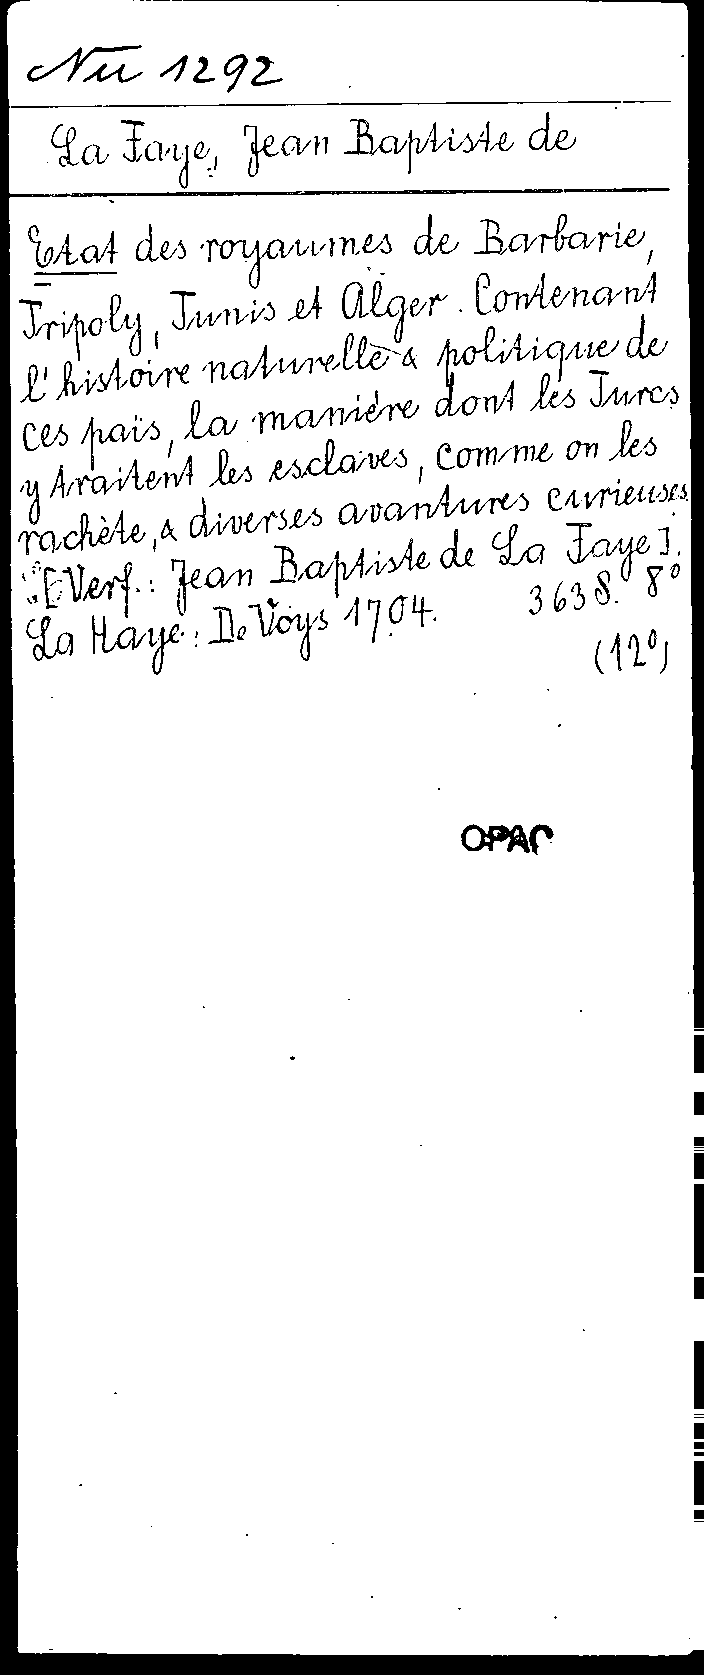 Nu 1292
La Faye, Jean Baptiste de
Etat des royaumes de Barbarie,
Tripoly, Tunis et Alger. Contenant
l'histoire naturelle & politique de
ces païs, la manière dont les Turcs
y traitent les esclaves, comme on les
rachète, & diverses avantures curieuses.
[Verf.: Jean Baptiste de La Faye].
La Haye: De Voys 1704. 363 S. 8°
(12°)
OPAC